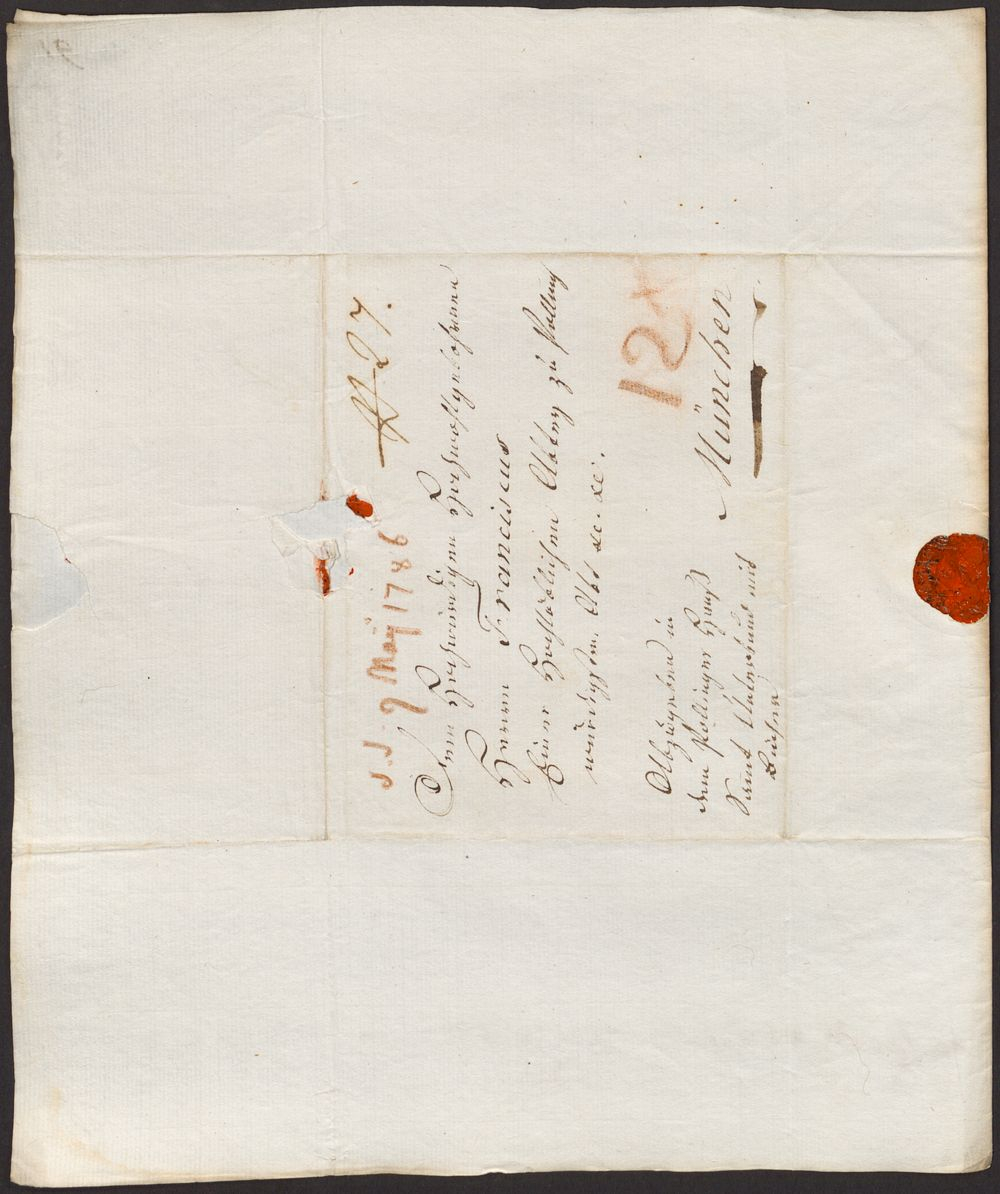 d. d. 9 Maij 1786
N. 27.
Dem Hochwürdigen Hochwohlgebohrnen
Herrn Franciscus
Einer Hochlöblichen Abbtey zu Polling
würdigsten Abt &c. &c.
12 x
Abzugeben in
dem Pollinger Hauß
München
Samt